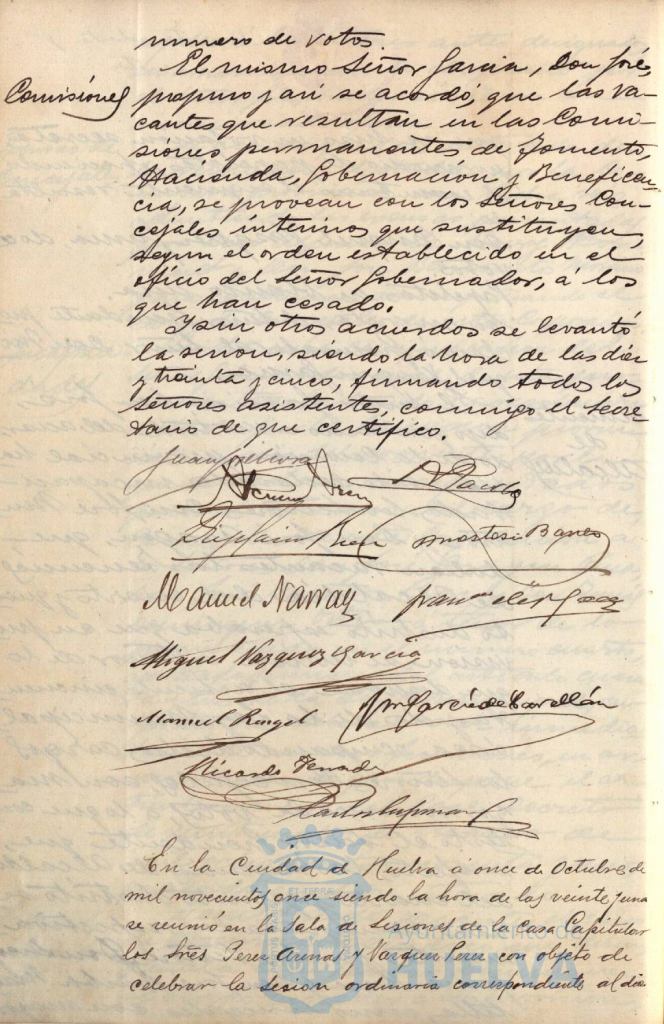 numero de votos.
Comisiónes
El mismo Señor Garcia, Don José,
propuso y asi se acordó, que las va-
cantes que resultan en las Comi-
siónes permanentes de Fomento,
Hacienda, Gobernación y Beneficen-
cia, se provean con los Señores Con-
cejales interinos que sustituyen,
segun el orden establecido en el
oficio del Señor Gobernador, á los
que han cesado.
Y sin otros acuerdos se levantó
la sesión, siendo la hora de las diez
y treinta y cinco, firmando todos los
Señores asistentes, conmigo el Secre-
tario de que certifico.
Manuel Narvaez
Miguel Vazquez y Garcia
Manuel Rengel
Jm Garcia de
Ricardo Terrades
En la Ciudad de Huelva á once de Octubre de
mil novecientos once siendo la hora de las veinte y una
se reunió en la Sala de Sesiones de la casa Capitular
los Sres Perez Arenas y Vazquez Perez con objeto de
celebrar la sesion ordinaria correspondiente al dia
Ayuntamiento de
HUELVA